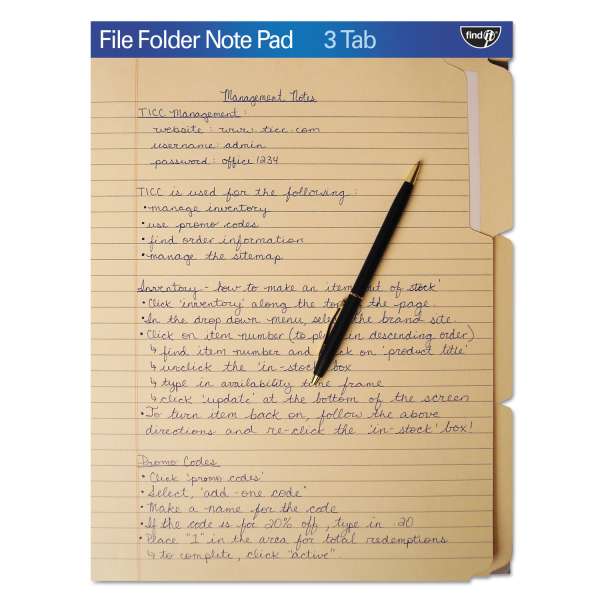 File Folder Note Pad 3 Tab
find it
Management Notes
TICC Management:
website: www.ticc.com
username: admin
password: office1234
TICC is used for the following:
• manage inventory
• use promo codes
• find order information
• manage the sitemap
Inventory - how to make an item out of stock'
• Click 'inventory' along the to the page.
• In the drop down menu, sele the brand site
• Click on item number (to pl in descending order)
↳ find item number and k on 'product title'
↳ unclick the 'in-stock' box
↳ type in availability time frame
↳ click 'update' at the bottom of the screen
• To turn item back on, follow the above
directions and re-click the 'in-stock' box!
Promo Codes
• Click 'promo codes'
• Select, 'add-one code'
• Make a name for the code
• If the code is for 20% off, type in .20
• Place "1" in the area for total redemptions
↳ to complete, click "active".